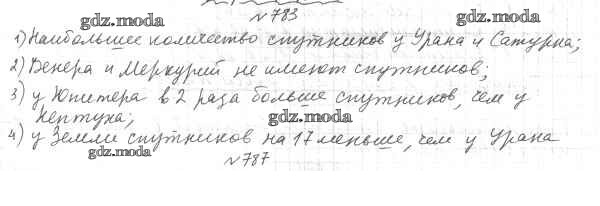 gdz.moda
№783
gdz.moda
1) Наибольшее количество спутников у Урана и Сатурна;
2) Венера и Меркурий не имеют спутников;
3) у Юпитера в 2 раза больше спутников, чем у
Нептуна;
gdz.moda
4) у Земли спутников на 17 меньше, чем у Урана
gdz.moda
№787